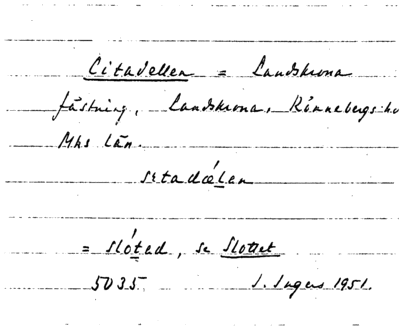 Citadellen = Landskrona
fästning, Landskrona, Rönnebergs hd
Mhs län.
setadǽlen
= slóted, se Slottet
5035. I. Ingers 1951.